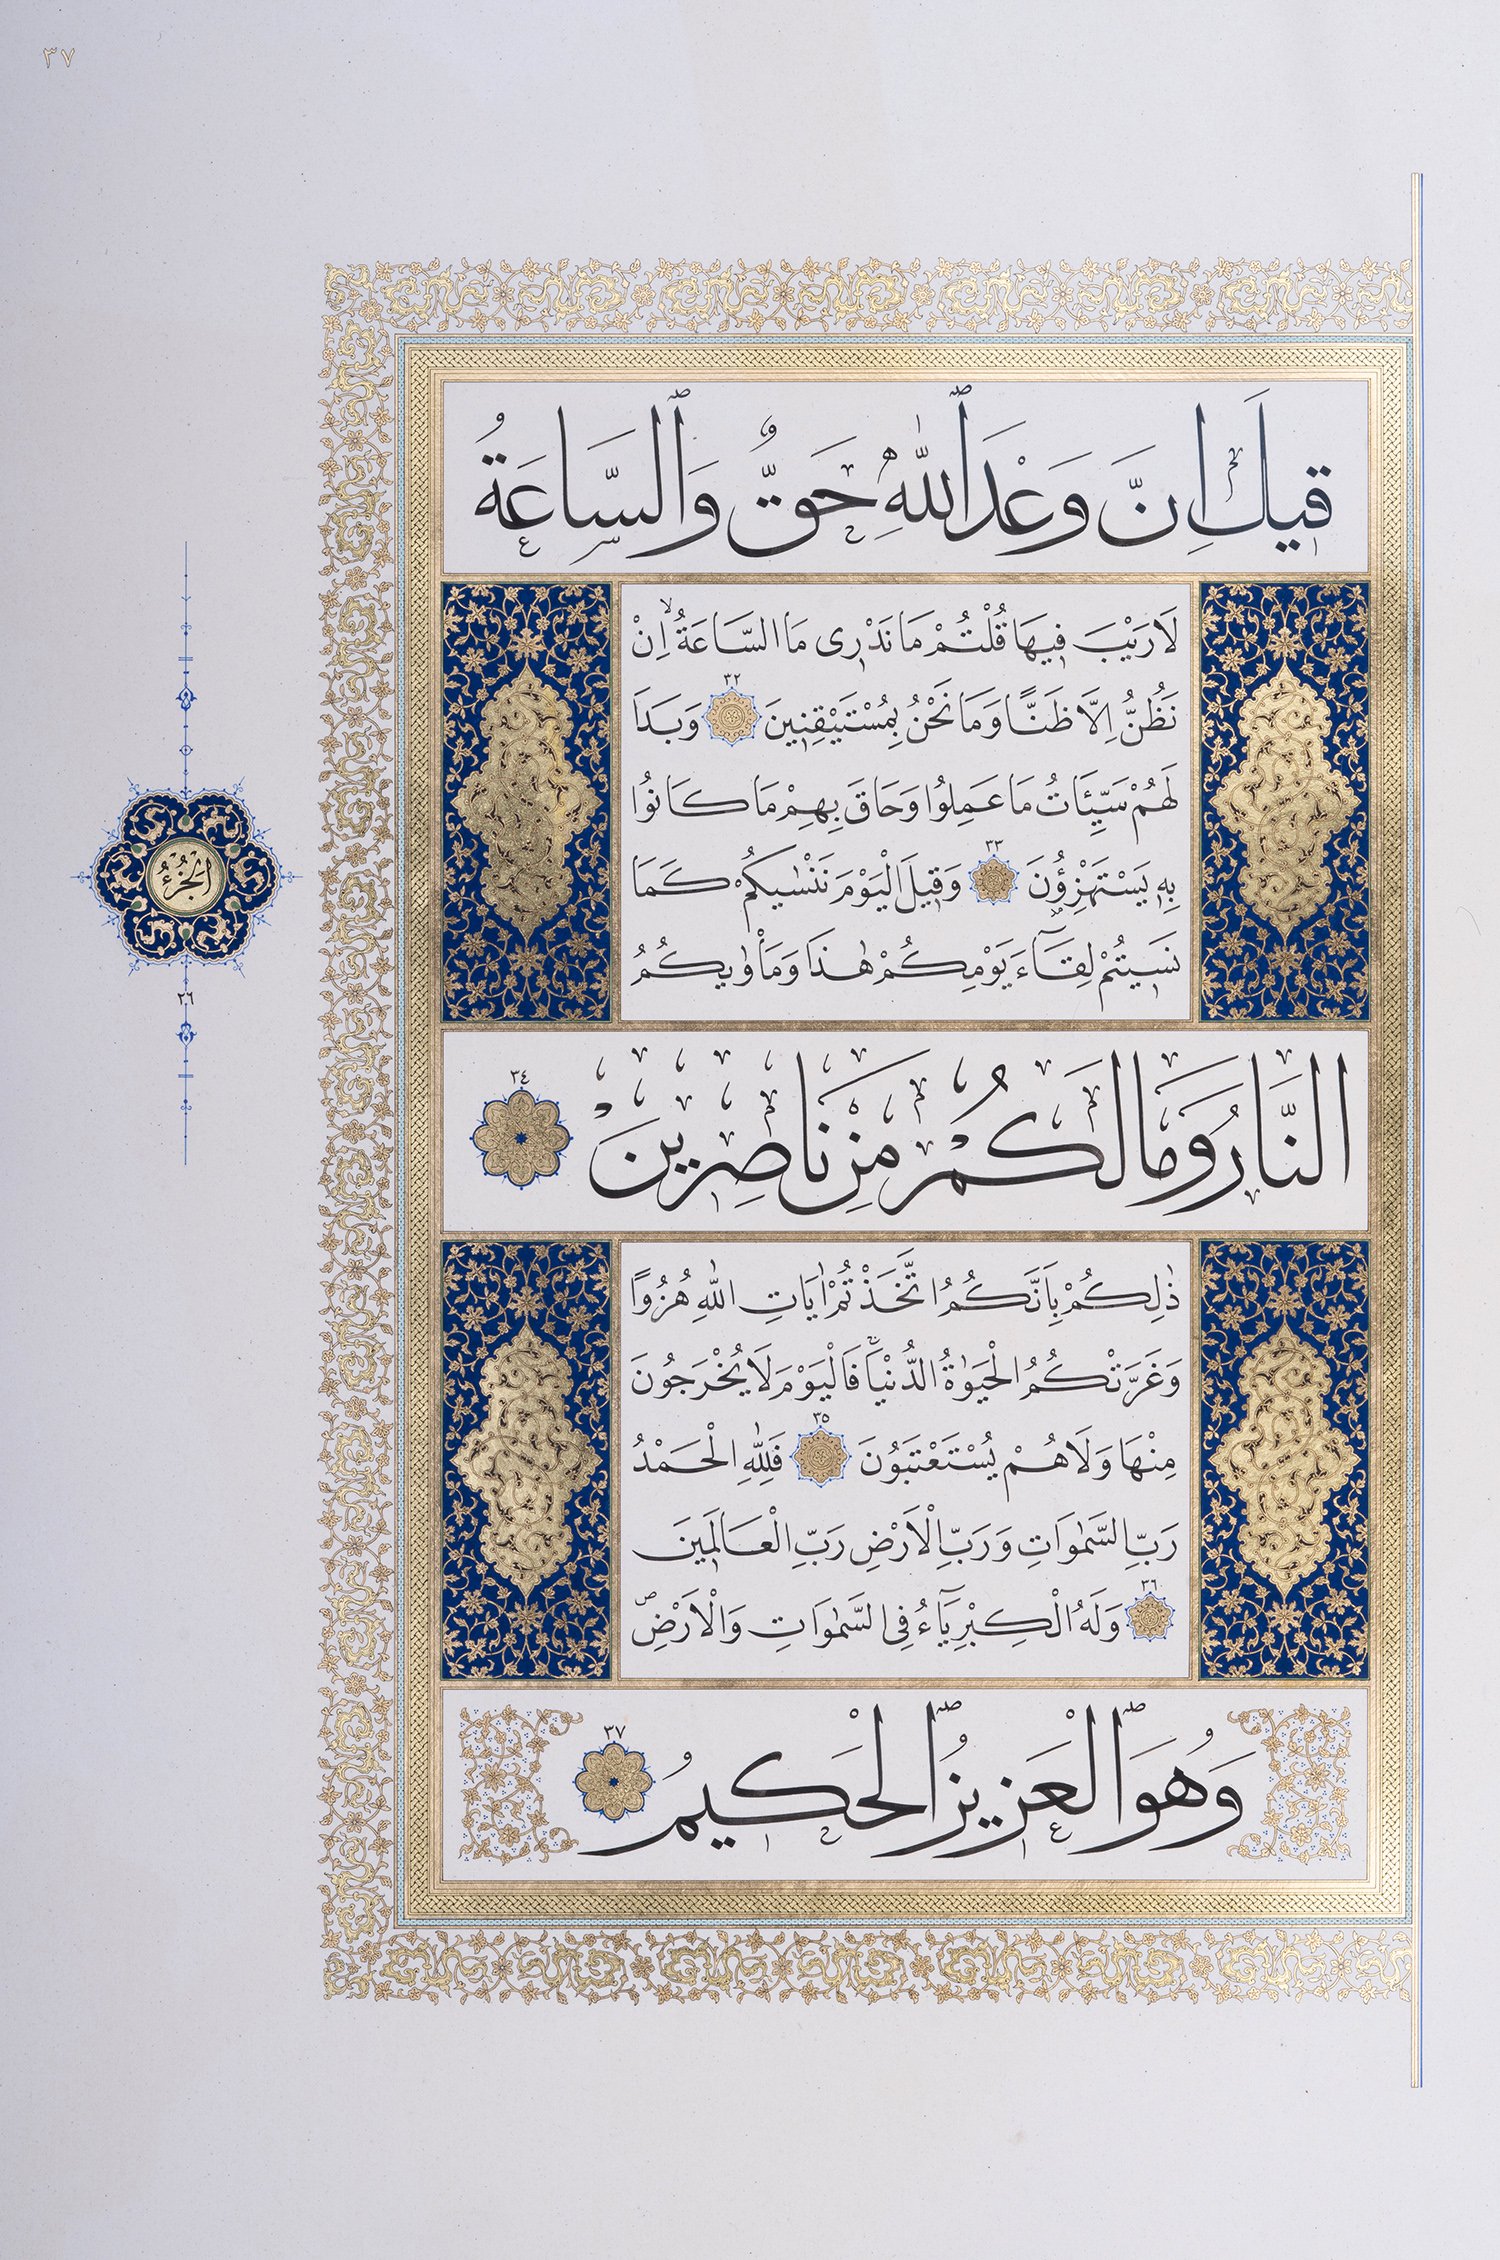 ٣٧
قِيلَ اِنَّ وَعْدَ ٱللّٰهِ حَقٌّ وَٱلسَّاعَةُ
لَا رَيْبَ فِيهَا قُلْتُمْ مَا نَدْرِى مَا السَّاعَةُۙ اِنْ
نَظُنُّ اِلَّا ظَنًّا وَمَا نَحْنُ بِمُسْتَيْقِنِينَ ٣٢ وَبَدَا
لَهُمْ سَيِّئَاتُ مَا عَمِلُوا وَحَاقَ بِهِمْ مَا كَانُوا
بِهٖ يَسْتَهْزِؤُنَ ٣٣ وَقِيلَ الْيَوْمَ نَنْسٰيكُمْ كَمَا
نَسِيتُمْ لِقَٓاءَ يَوْمِكُمْ هٰذَا وَمَأْوٰيكُمُ
النَّارُ وَمَا لَكُمْ مِنْ نَاصِرِينَ ٣٤
ذٰلِكُمْ بِاَنَّكُمُ اتَّخَذْتُمْ اٰيَاتِ اللّٰهِ هُزُوًا
وَغَرَّتْكُمُ الْحَيٰوةُ الدُّنْيَاۚ فَالْيَوْمَ لَا يُخْرَجُونَ
مِنْهَا وَلَا هُمْ يُسْتَعْتَبُونَ ٣٥ فَلِلّٰهِ الْحَمْدُ
رَبِّ السَّمٰوَاتِ وَرَبِّ الْاَرْضِ رَبِّ الْعَالَمِينَ
٣٦ وَلَهُ الْكِبْرِيَٓاءُ فِى السَّمٰوَاتِ وَالْاَرْضِۖ
وَهُوَ ٱلْعَزِيزُ ٱلْحَكِيمُ ٣٧
الْجُزْءُ
٢٦